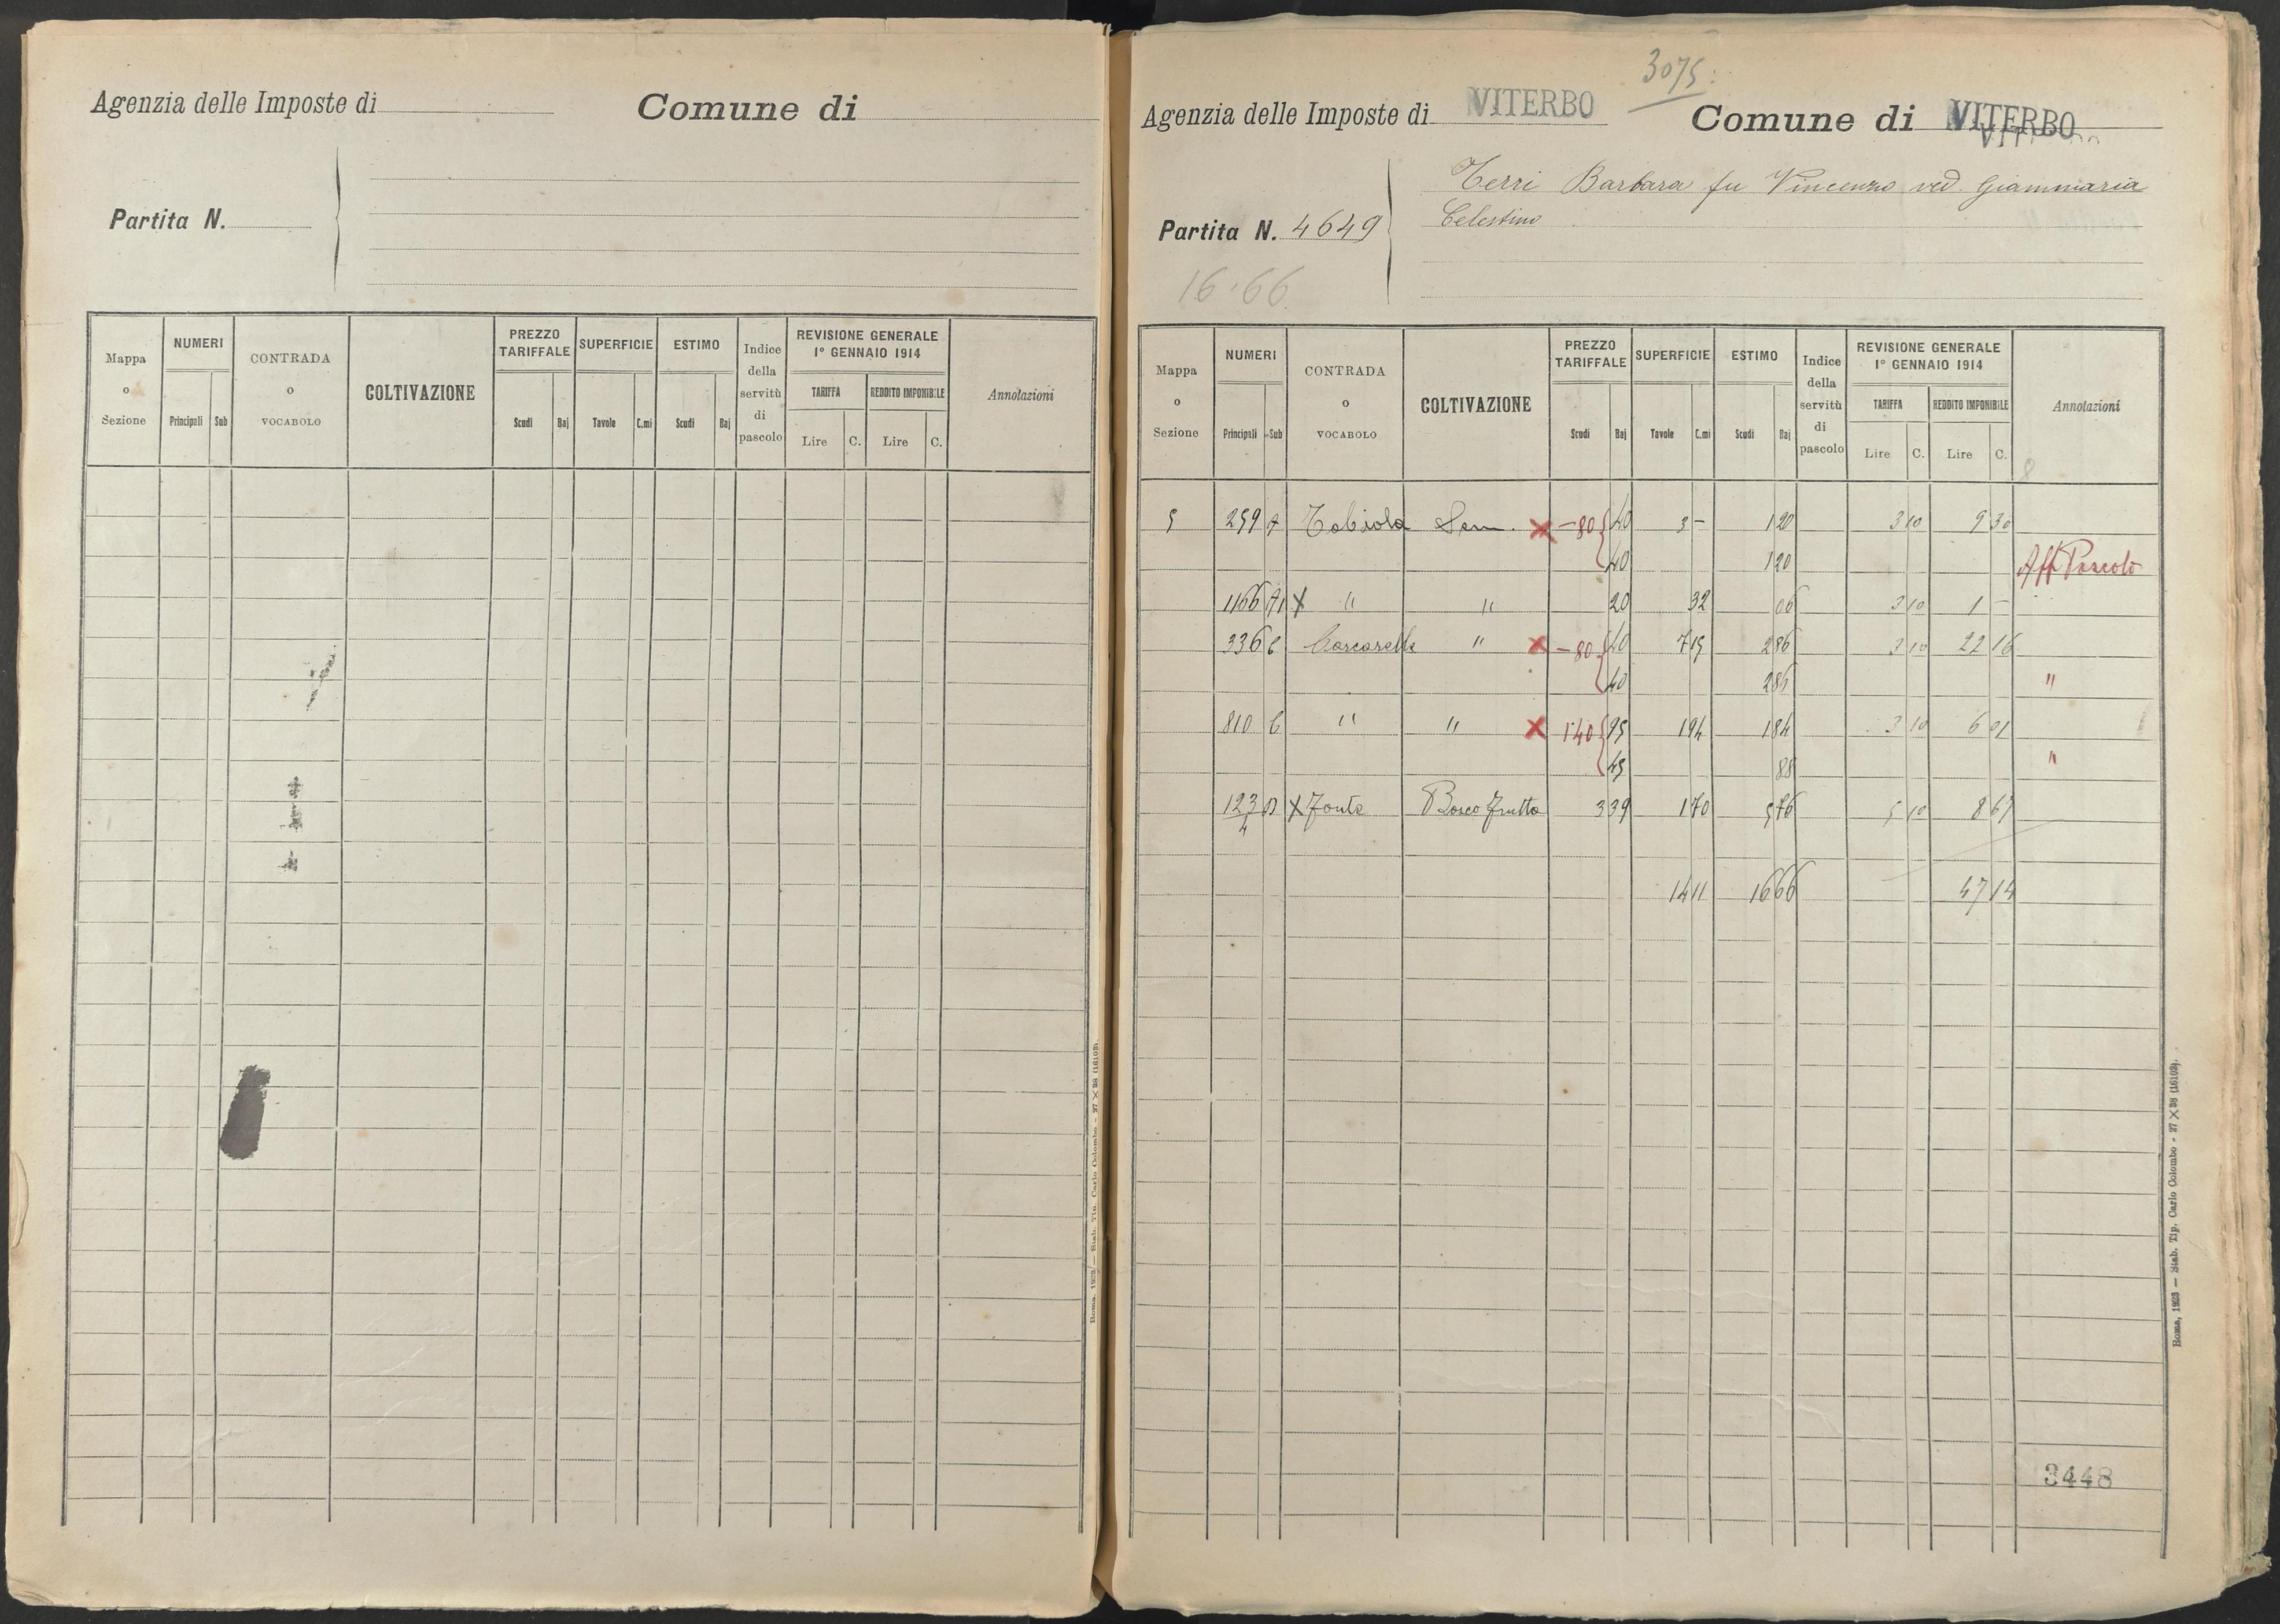 Agenzia delle Imposte di
Comune di
Partita N.
Mappa o Sezione
NUMERI
Principali Sub
CONTRADA o VOCABOLO
COLTIVAZIONE
PREZZO TARIFFALE
Scudi Baj
SUPERFICIE
Tavole C.mi
ESTIMO
Scudi Baj
Indice della servitù di pascolo
REVISIONE GENERALE
1° GENNAIO 1914
TARIFFA
Lire C.
REDDITO IMPONIBILE
Lire C.
Annotazioni
Roma, 1923 — Stab. Tip. Carlo Colombo - 27 X 38 (16103).
3075
Agenzia delle Imposte di VITERBO
Comune di VITERBO
Terri Barbara fu Vincenzo ved. Giammaria
Celestino
Partita N. 4649
16.66
Mappa o Sezione
NUMERI
Principali Sub
CONTRADA o VOCABOLO
COLTIVAZIONE
PREZZO TARIFFALE
Scudi Baj
SUPERFICIE
Tavole C.mi
ESTIMO
Scudi Baj
Indice della servitù di pascolo
REVISIONE GENERALE
1° GENNAIO 1914
TARIFFA
Lire C.
REDDITO IMPONIBILE
Lire C.
Annotazioni
5 259 A Tobiola Sem. X -80 40 3 - 1 20 3 10 9 30
40 1 20 Aff Pascolo
1166 A1 X " " 20 32 06 3 10 1 -
336 C " X -80 40 7 15 2 86 3 10 22 16
40 2 86 "
810 C " " X 1 40 95 1 94 1 84 3 10 6 01
45 88 "
123/4 X Fonte Bosco frutto 3 39 1 70 5 76 5 10 8 67
14 11 16 66 47 14
3448
Roma, 1923 — Stab. Tip. Carlo Colombo - 27 X 38 (16103).